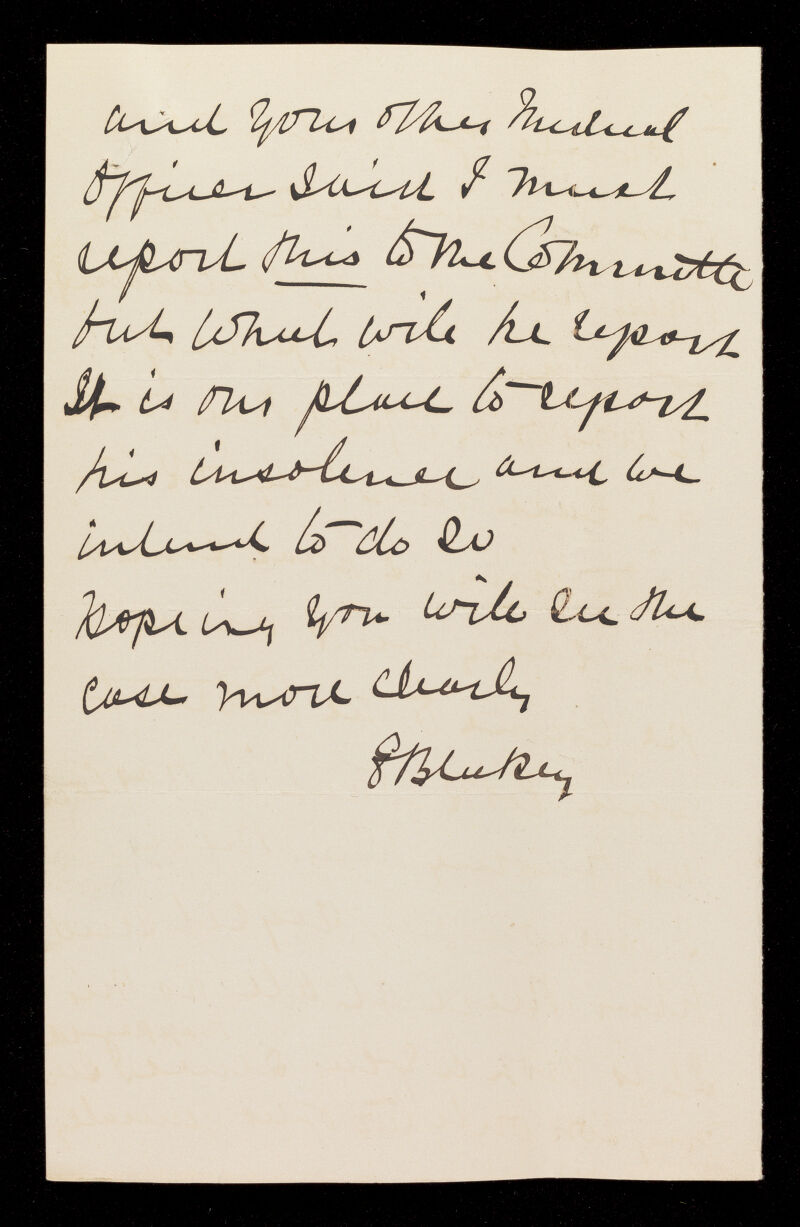 and your other Medical
Officer said I must
report this to the Committe
but what will he report
It is our place to report
his insolence and we
intend to do so
hopeing you will see the
case more clearly
E Blakey